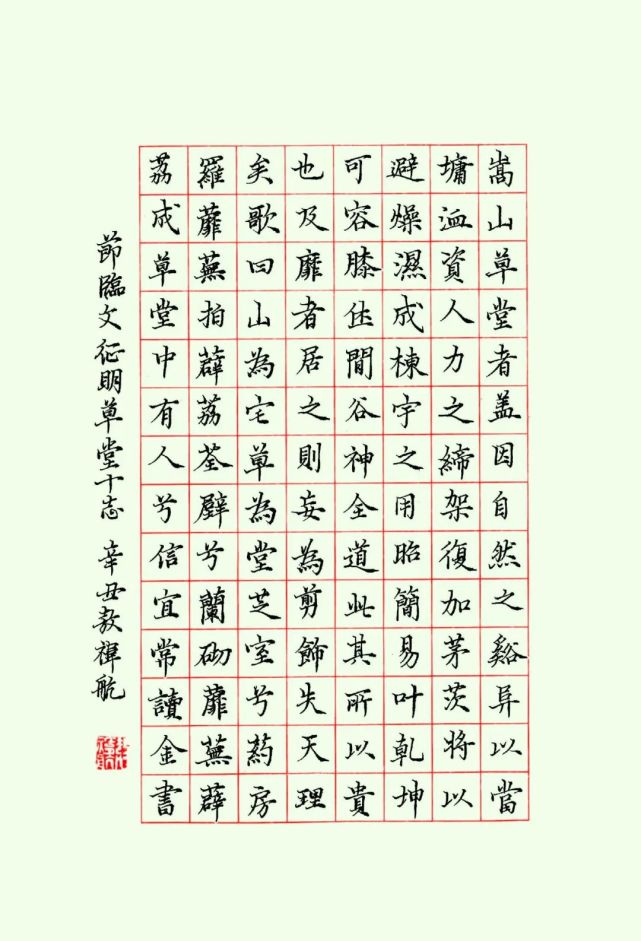 嵩山草堂者盖因自然之谿异以當
墉洫資人力之締架復加茅茨將以
避燥濕成棟宇之用昭簡易叶乾坤
可容膝休閒谷神全道此其所以貴
也及靡者居之則妄為剪飾失天理
矣歌曰山為宅草為堂芝室兮葯房
羅蘼蕪拍薜荔荃壁兮蘭砌蘼蕪薜
荔成草堂中有人兮信宜常讀金書
節臨文征明草堂十志 辛丑敖禕航